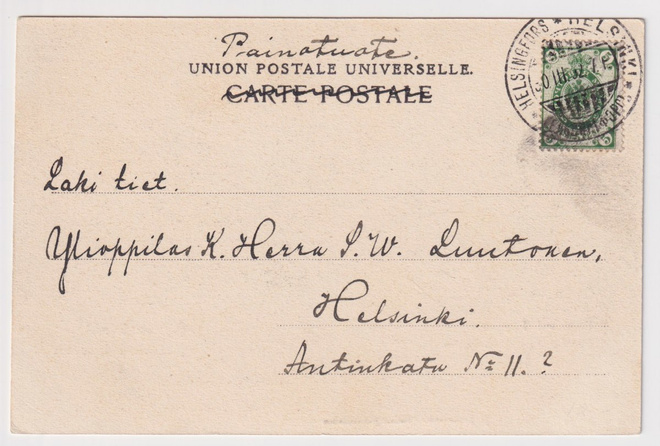 Painotuote.
UNION POSTALE UNIVERSELLE.
CARTE POSTALE
HELSINGFORS * HELSINKI *
30.III.02.7
5
Laki tiet.
Ylioppilas K. Herra S. W. Luutonen,
Helsinki.
Antinkatu № 11.?